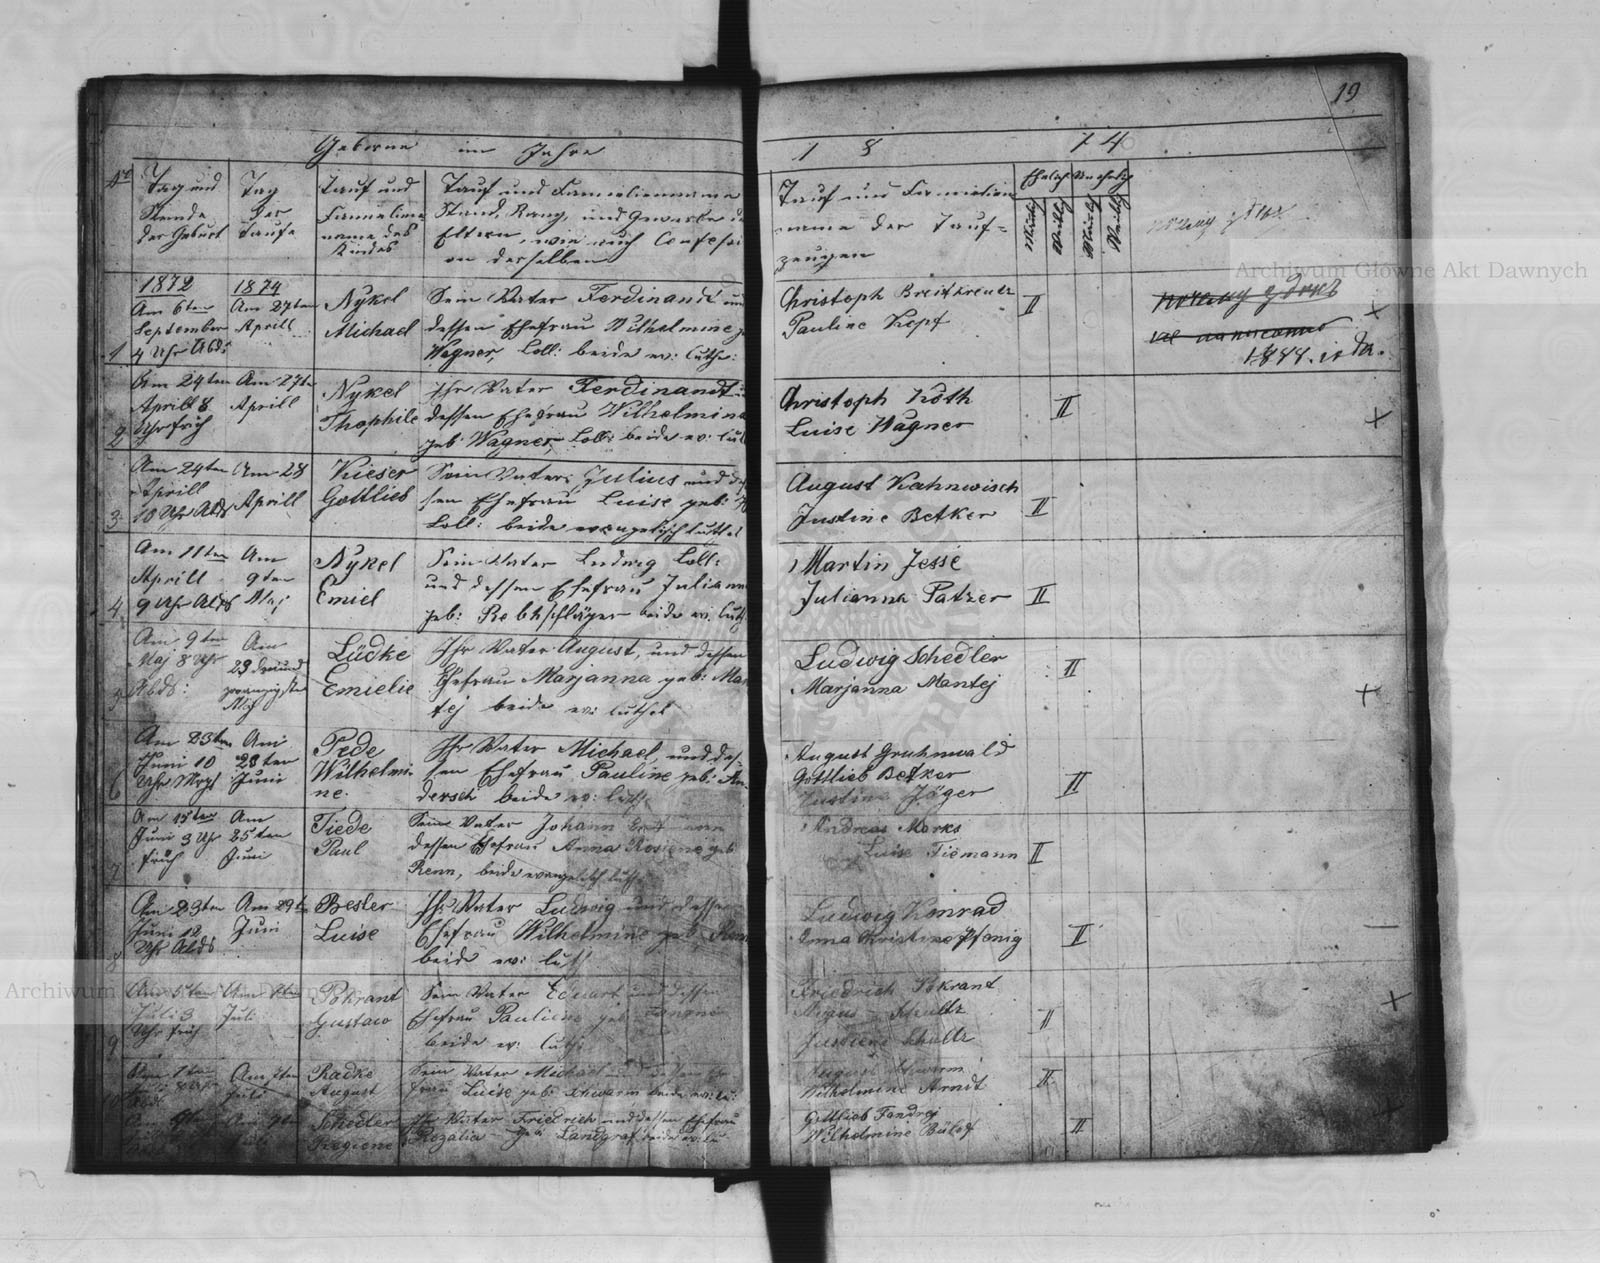 19
Geborne im Jahre
1 8 7 4
No
Tag und
Stunde
der Geburt
Tag
der
Taufe
Tauf und
Familien
name des
Kindes
Tauf und Familienname
Stand, Rang, und Gewerbe der
Eltern, wie auch Confessi
on derselben
Tauf und Familien
name der Tauf=
zeugen
Ehelich Unehelig
Archiwum Główne Akt Dawnych
1
1872
Am 6ten
September
4 Uhr Abds
1874
Am 27ten
Aprill
Nykel
Michael
Sein Vater Ferdinandt und
dessen Ehefrau Wilhelmine
Wagner, Coll: beide ev: luth:
Christoph Breitkreutz
Pauline Kopf
II
1888
2
Am 24ten
Aprill 8
Uhr früh
Am 27
Aprill
Nykel
Thophile
Ihr Vater Ferdinandt
dessen Ehefrau Wilhelmine
geb: Wagner, Coll: beide ev: luth
Christoph Köth
Luise Wagner
II
3
Am 24ten
Aprill
10 Uhr Abds
Am 28
Aprill
Kieser
Gottlieb
Sein Vater, Julius und des
sen Ehefrau Luise geb:
Coll: beide evangelisch
August Kahnwisch
Justine Betker
II
4
Am 11ten
Aprill
9 Uhr Abds
Am
9ten
Maj
Nykel
Emiel
Sein Vater Ludwig Coll:
und dessen Ehefrau Julianna
geb: Rebhschläger beide ev: luth
Martin Jesse
Julianna Patzer
II
5
Am 9ten
Maj 8 Uhr
Abds:
Am
23 dreiund
zwanzigsten
Maj
Lüdke
Emielie
Ihr Vater August, und dessen
Ehefrau Marjanna geb: Man
tej beide ev: luthel
Ludwig Schedler
Marjanna Mantej
II
6
Am 23ten
Juni 10
Uhr Mrgs
Am
28ten
Juni
Pede
Wilhelmi-
ne.
Ihr Vater Michael, und des-
sen Ehefrau Pauline geb: An-
dersch beide ev: luth
August Gruhnwald
Gottlieb Betker
Justine Jäger
II
7
Am 15ten
Juni 3 Uhr
früh
Am
25ten
Juni
Tiede
Paul
Sein Vater Johann
dessen Ehefrau Anna Rosiene geb
Renn, beide evangelisch luth
Andreas Marks
Luise Tiemann
II
8
Am 23ten
Juni 12
Uhr Abds
Am 29
Juni
Besler
Luise
Ihr Vater Ludwig und dessen
Ehefrau Wilhelmine geb
beide ev: luth
Ludwig Konrad
Anna Christine Pfenig
II
Archiwum Główne Akt Dawnych
9
Am 5ten
Juli 3
Uhr früh
Am
Juli
Pokrant
Gustaw
Sein Vater Eduart und dessen
Ehefrau Pauliene geb
beide ev: luth:
Friedrich Pokrant
Schultz
Justiene Schultz
II
10
Am
Juli
Radke
August
Sein Vater Michael und dessen Ehe
frau Luise geb: Schwarm beide ev: lu:
August Schwarm
Wilhelmine Arndt
II
Schedler
Regiene
Ihr Vater Friedrich und dessen Ehefrau
Rozalia geb Landgraf beide ev: lu
Gottlieb Fandrej
Wilhelmine Bülof
II